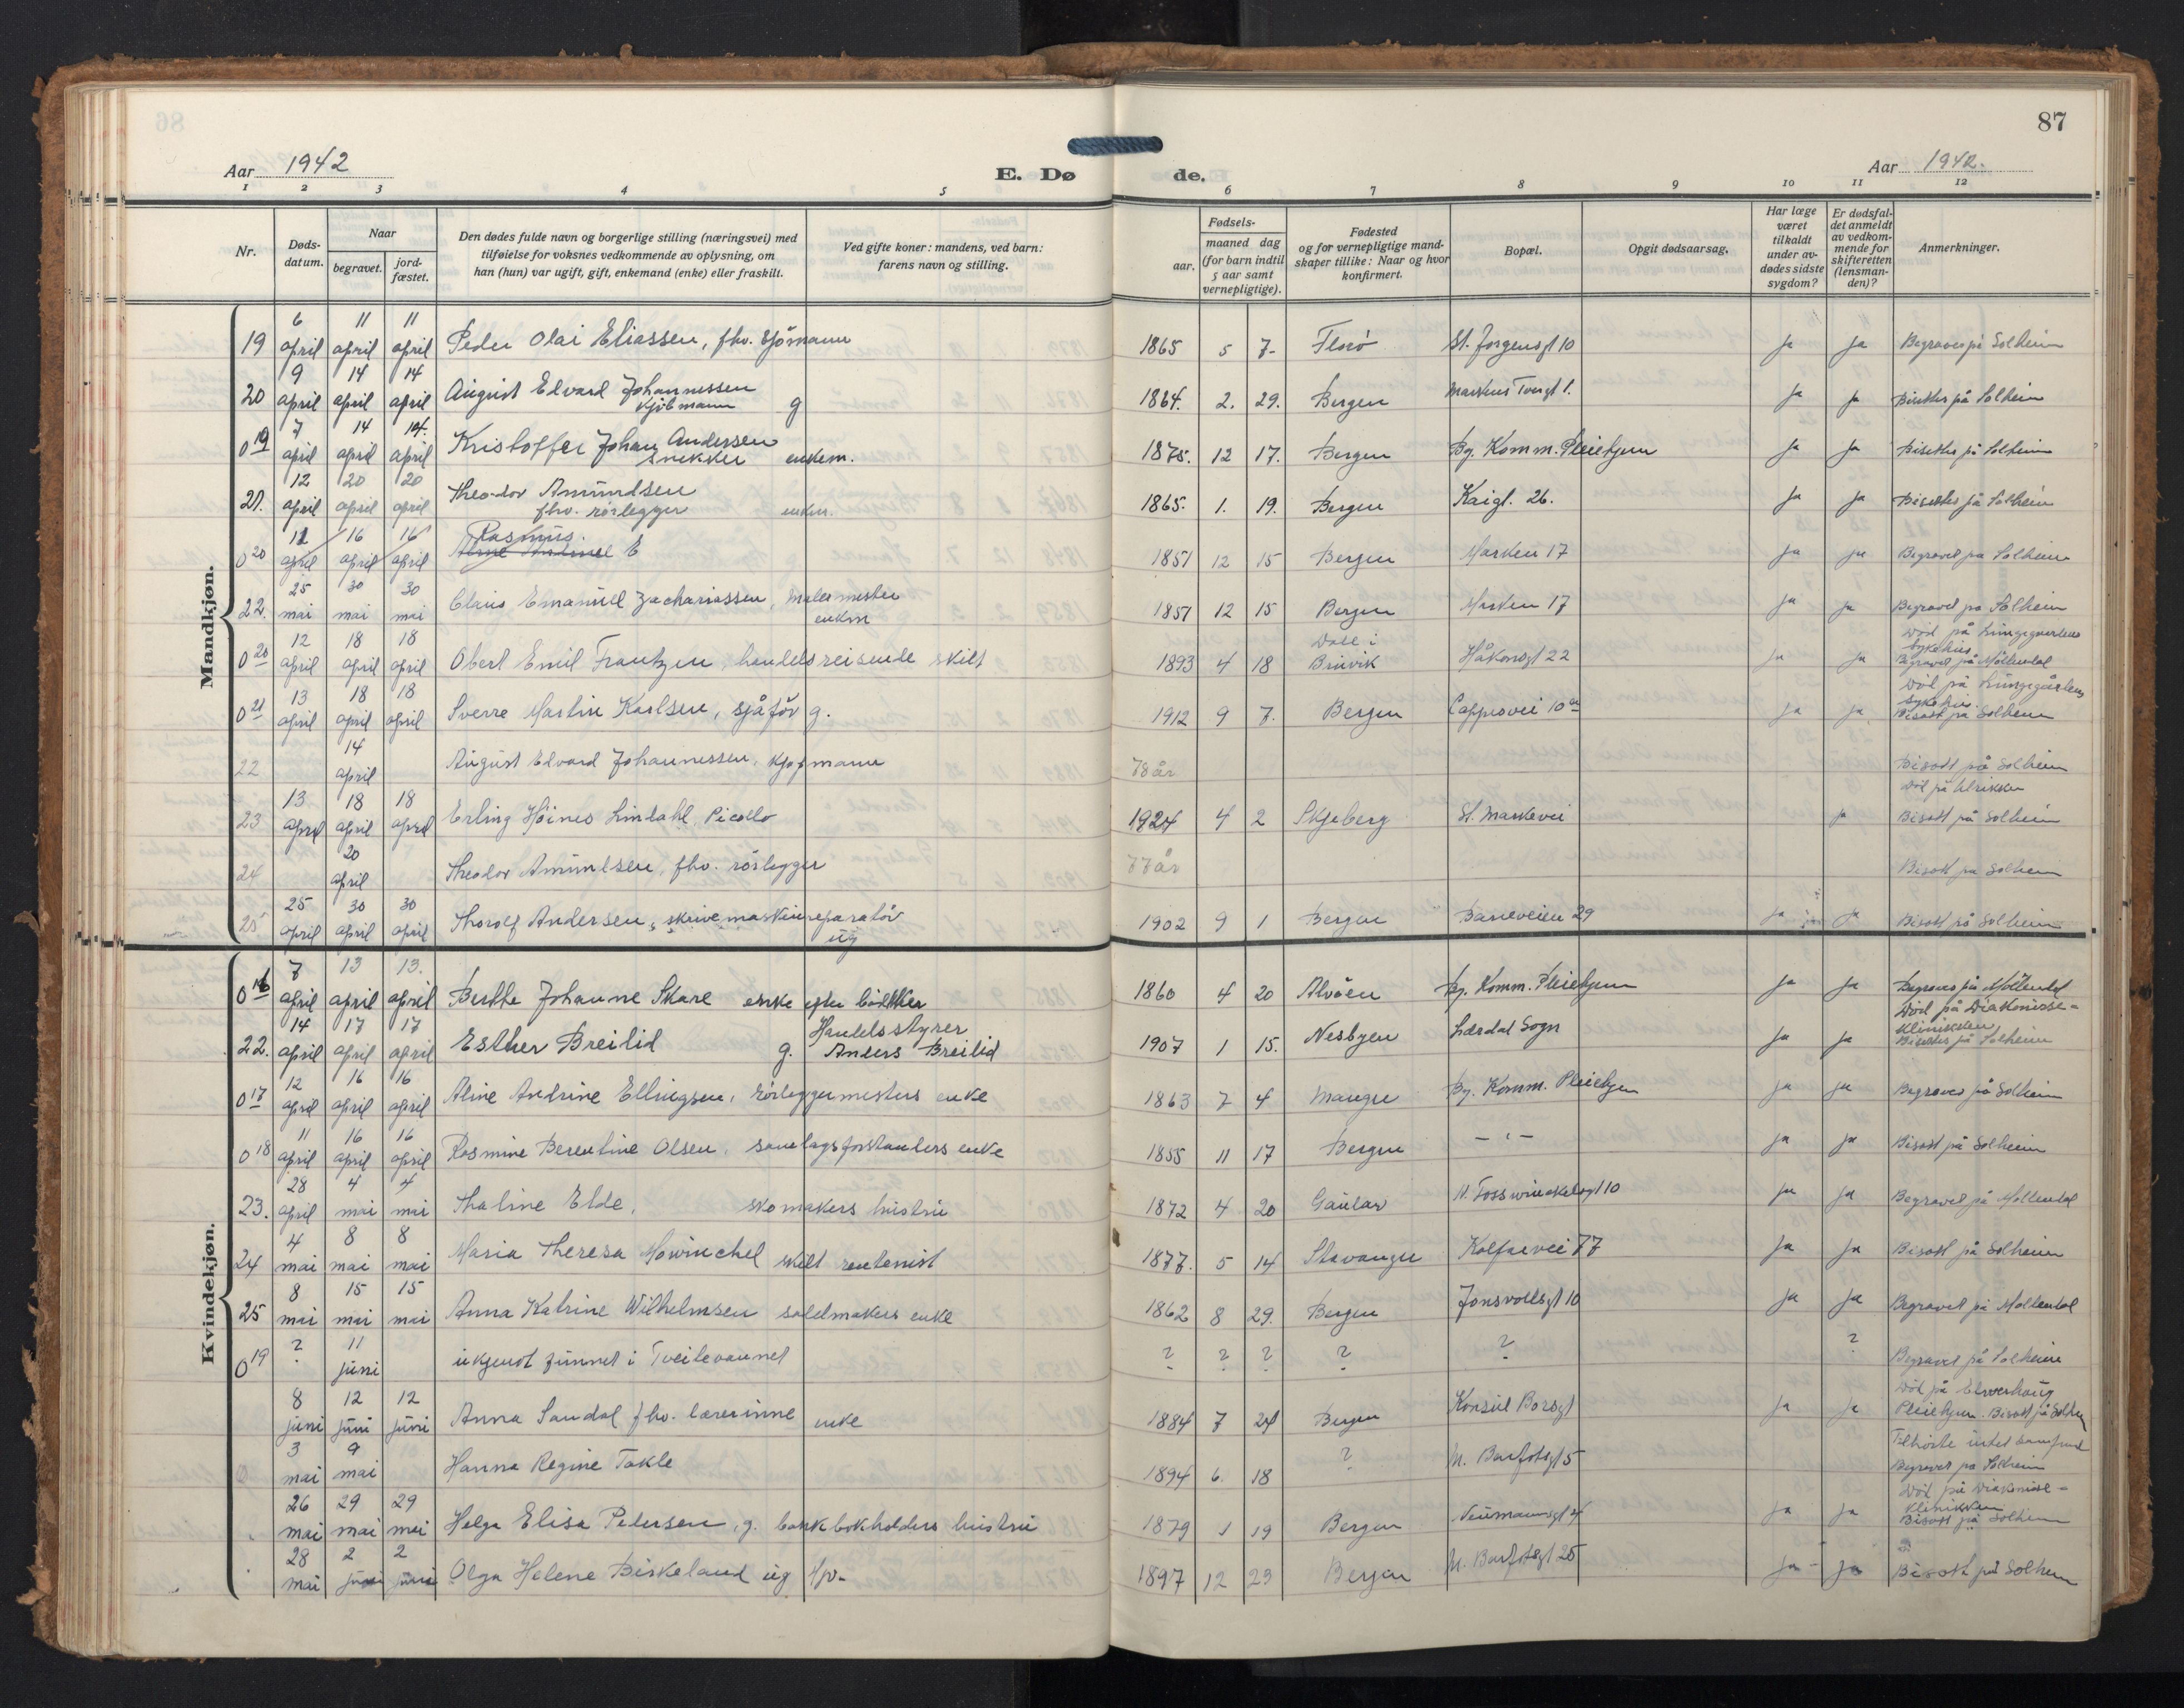 87
Aar 1942
E. Dø
de.
Aar 1942.
1 2 3 4 5 6 7 8 9 10 11 12
Nr.
Døds-
datum.
Naar
begravet.
jord-
fæstet.
Den dødes fulde navn og borgerlige stilling (næringsvei) med
tilføielse for voksnes vedkommende av oplysning, om
han (hun) var ugift, gift, enkemand (enke) eller fraskilt.
Ved gifte koner: mandens, ved barn:
farens navn og stilling.
Fødsels-
aar.
maaned dag
(for barn indtil
5 aar samt
vernepligtige).
Fødested
og for vernepligtige mand-
skaper tillike: Naar og hvor
konfirmert.
Bopæl.
Opgit dødsaarsag.
Har læge
været
tilkaldt
under av-
dødes sidste
sygdom?
Er dødsfal-
det anmeldt
av vedkom-
mende for
skifteretten
(lensman-
den)?
Anmerkninger.
Mandkjøn.
19 6 april 11 april 11 april Peder Olai Eliassen, fhv. sjömann 1865 5 7 Florö St. Jørgensgt 10 ja ja Begraves på Solheim
20 9 april 14 april 14 april August Edvard Johannessen kjöbmann g 1864. 2. 29. Bergen ja ja Bisettes på Solheim
0 19 7 april 14 april 14. april Kristoffer Johan Andersen snekker enkem. 1875. 12 17. Bergen Bg. Komm. Pleiehjem ja ja Bisettes på Solheim
21. 12 april 20 april 20 april Theodor Amundsen fhv. rörlegger enkem. 1865. 1. 19. Bergen Kaigt. 26. ja ja Bisettes på Solheim
0 20 april 16 april 16 april Rasmus. E 1851 12 15 Bergen Marken 17 ja ja Begravet på Solheim
22. 25 mai 30 mai 30 mai Claus Emanuel Zachariassen, malermester enkm 1851 12 15 Bergen Marken 17 ja ja Begravet på Solheim
0 20 12 april 18 april 18 april Obert Emil Frantzen, handelsreisende skilt 1893 4 18 Bruvik Håkonsgt 22 ja ja Död på Lungegaardens sykehus Begravet på Möllendal
0 21 13 april 18 april 18 april Sverre Martin Karlsen, sjåför g. 1912 9 7. Bergen ja ja Död på Lungegårdens sykehus. Bisatt på Solheim
22 14 april August Edvard Johannessen, kjøpmann 78 år Bisatt på Solheim
23 13 april 18 april 18 april Erling Höines Lindahl, Picollo 1924 4 2 Skjeberg St. Markevei ja Död på Ulrikken Bisatt på Solheim
24 20 april Theodor Amundsen, fhv. rörlegger 77 år Bisatt på Solheim
25 25 april 30 april 30 april Thorolf Andersen, skrivemaskinreparatör ug 1902 9 1 Bergen 29 ja ja Bisatt på Solheim
Kvindekjøn.
0 16 7 april 13 april 13. april Berthe Johanne Skare enke 1860 4 20 Alvöen Bg. Komm. Pleiehjem ja ja Begraves på Möllendal
22. 14 april 17 april 17 april Esther Breilid g. Handelsstyrer Anders Breilid 1907 1 15. Nesbyen Lærdal Sogn ja ja Död på Diakonisse-klinikken Bisettes på Solheim
0 17 12 april 16 april 16 april Aline Andrine Ellingsen, rörleggermesters enke 1863 7 4 Manger Bg. Komm. Pleiehjem ja ja Begraves på Solheim
0 18 11 april 16 april 16 april Rasmine Berentine Olsen, enke 1855 11 17 Bergen – " – ja ja Bisatt på Solheim
23. 28 april 4 mai 4 mai Thaline Elde, skomakers hustru 1872 4 20 Gaular N. Fosswinckelsgt 10 ja ja Begravet på Möllendal
24 4 mai 8 mai 8 mai Maria Theresa Mowinchel skilt rentenist 1877. 5 14 Stavanger Kalfarvei 77 ja ja Bisatt på Solheim
25 8 mai 15 mai 15 mai Anna Katrine Wilhelmsen salmakers enke 1862 8 29. Bergen Jonsvollsgt 10 ja ja Begravet på Möllendal
0 19 ? 11 juni ukjendt funnet i Tveitevannet ? ? ? ? ? ? Begravet på Solheim
8 juni 12 juni 12 juni Anna Sandal fhv. lærerinne enke 1884 7 24 Bergen Konsul Børsgt ja ja Död på Elverhaug Pleiehjem. Bisatt på Solheim
3 mai 9 mai Hanna Regine Takle 1894 6. 18 ? N. Barfotsgt 5 Tilhörte intet samfund Begravet på Solheim
26 mai 29 mai 29 mai Helga Elisa Pedersen, g. bankbokholders hustru 1879 1 19 Bergen Neumannsgt 4 ja ja Död på Diakonisse-klinikken Bisatt på Solheim
28 mai 2 juni 2 juni Olga Helene Birkeland ug 1897 12 23 Bergen N. Barfotsgt 25 ja ja Bisatt på Solheim